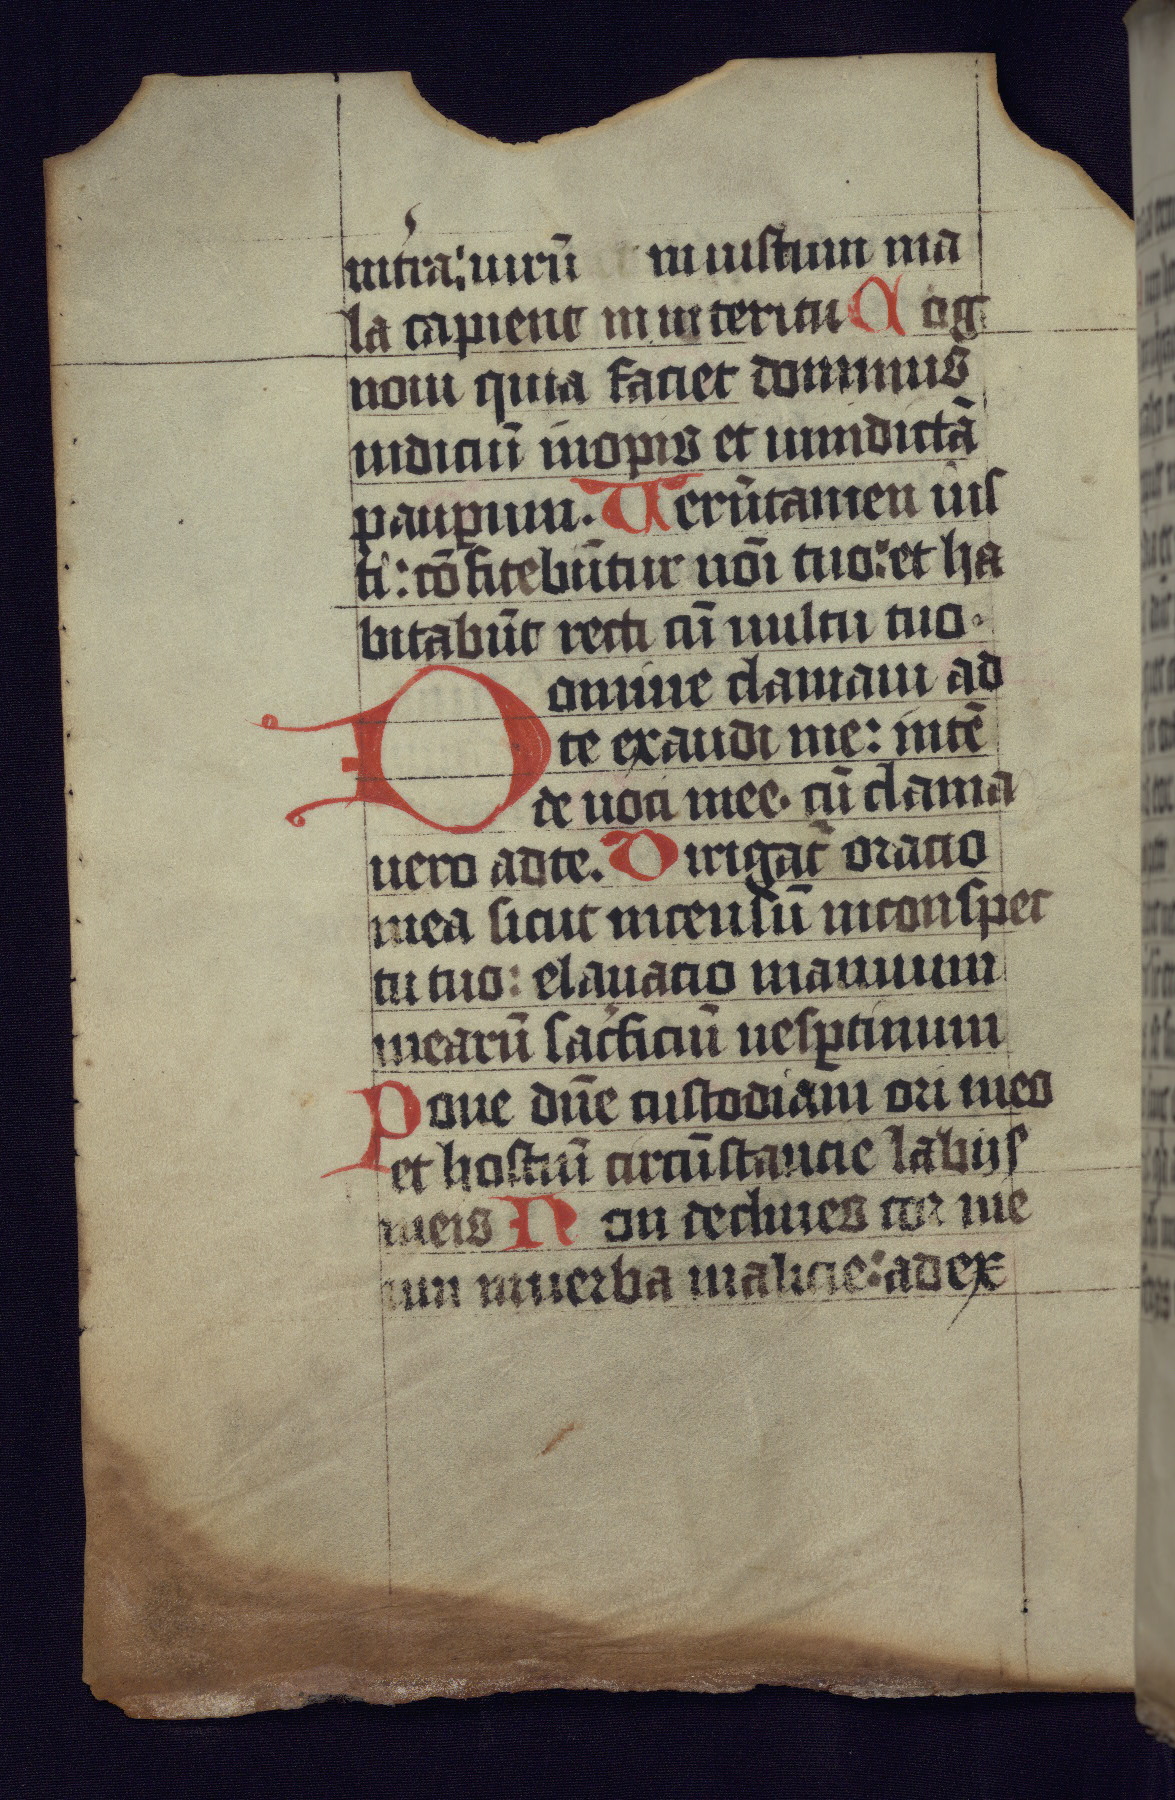 in tra: uirū iniustum ma
la capient in interitu Cog
noui quia faciet dominus
iudiciū inopis et uindictā
paup̱um. Uerūtamen ius
ti: cōfitebūtur nōi tuo: et ha
bitabūt recti cū uultu tuo.
Domine clamaui ad
te exaudi me: intē
de uoci mee. cū clama
uero ad te. Dirigat᷑ oracio
mea sicut incensū in conspec
tu tuo: elauacio manuum
mearū sac͛ficiū uesp̱tinum
Pone dn̄e custodiam ori meo
et hostiū circūstancie labijs
meis Non declines cor me
um in uerba malicie: ad ex